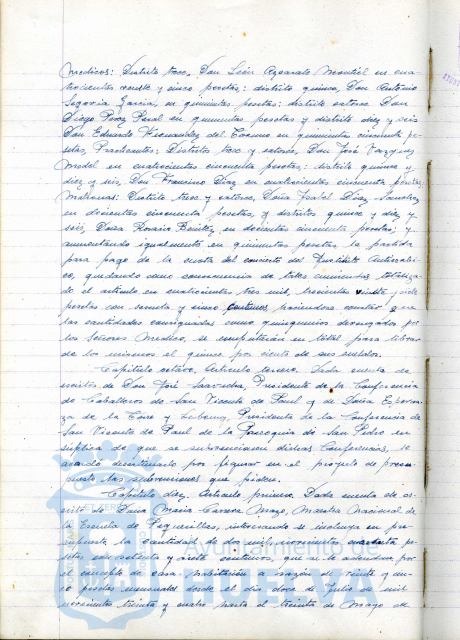 Medicos: Distrito trece, Don León Azparato Montiel en cua-
trocientas veinte y cinco pesetas; distrito quince, Don Antonio
Segovia Garcia, en quinientas pesetas; distrito catorce Don
Diego Perez Peral en quinientas pesetas y distrito diez y seis
Don Eduardo Hernandez del en quinientas cincuenta pe-
setas, Practicantes: Distritos trece y catorce, Don José Vazquez
Medel en cuatrocientas cincuenta pesetas; distrito quince y
diez y seis, Don Francisco Diaz en cuatrocientas cincuenta pesetas;
Matronas: Distrito trece y catorce, Doña Isabel Diaz Sanchez
en docientas cincuenta pesetas, y distritos quince y diez y
seis, Doña Rosario Benitez, en docientas cincuenta pesetas; y
aumentando igualmente en quinientas pesetas la partida
para pago de la cuota del concierto del Instituto Antirrabi-
co, quedando como consecuencia de tales aumentos totaliza-
do el articulo en cuatrocientas tres mil, trecientas veinte y siete
pesetas con setenta y cinco centimos haciendose constar que
las cantidades consignadas como quinquenios devengados por
los Señores Medico, se computarán en total para librar
de los mismos el quince por ciento de sus sueldos.
Capitulo octavo, Articulo tercero. Dada cuenta de
escritos de Don José Saavedra, Presidente de la Conferencia
de Caballeros de San Vicente de Paul y de Doña Esperan-
za de la Corte y, Presidenta de la Conferencia de
San Vicente de Paul de la Parroquia de San Pedro en
súplica de que se subvencionen dichas Conferencias, se
acordó desestimarlo por figurar en el proyecto de presu-
puesto las subvenciones que piden.
Capitulo diez, Articulo primero. Dada cuenta de es-
crito de Doña Maria Carrera Mazo, Maestra Nacional de
la Escuela de Pequerillas, interesando se incluya en pre-
supuesto la cantidad de dos mil, novecientas cuarenta pe-
setas con setenta y siete centimos, que se le adeudan por
el concepto de casa-habitación a razón de veinte y cin-
co pesetas mensuales desde el dia doce de Julio de mil
novecientos treinta y cuatro hasta el treinta de Mayo de
Ayuntamiento de
HUELVA